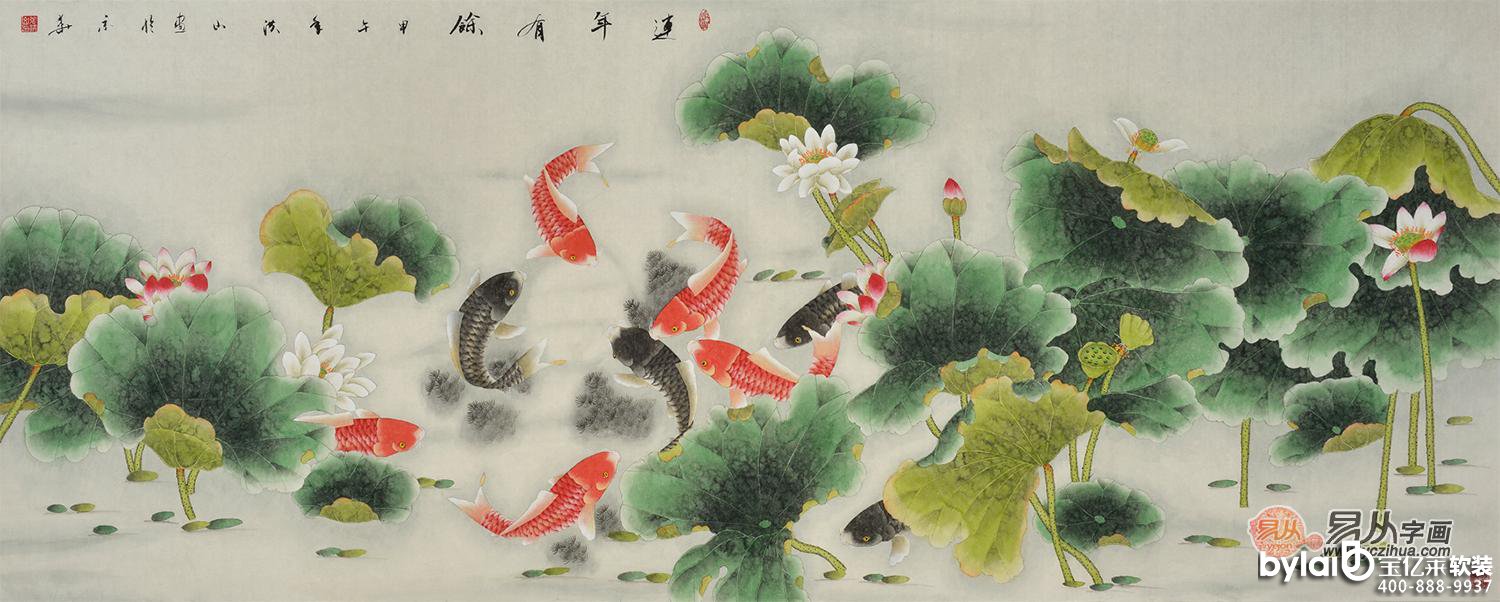 連年有餘 甲午年 洪山画於京華
易从
易从字画
www.yczihua.com
bylai 宝亿来软装
400-888-9937